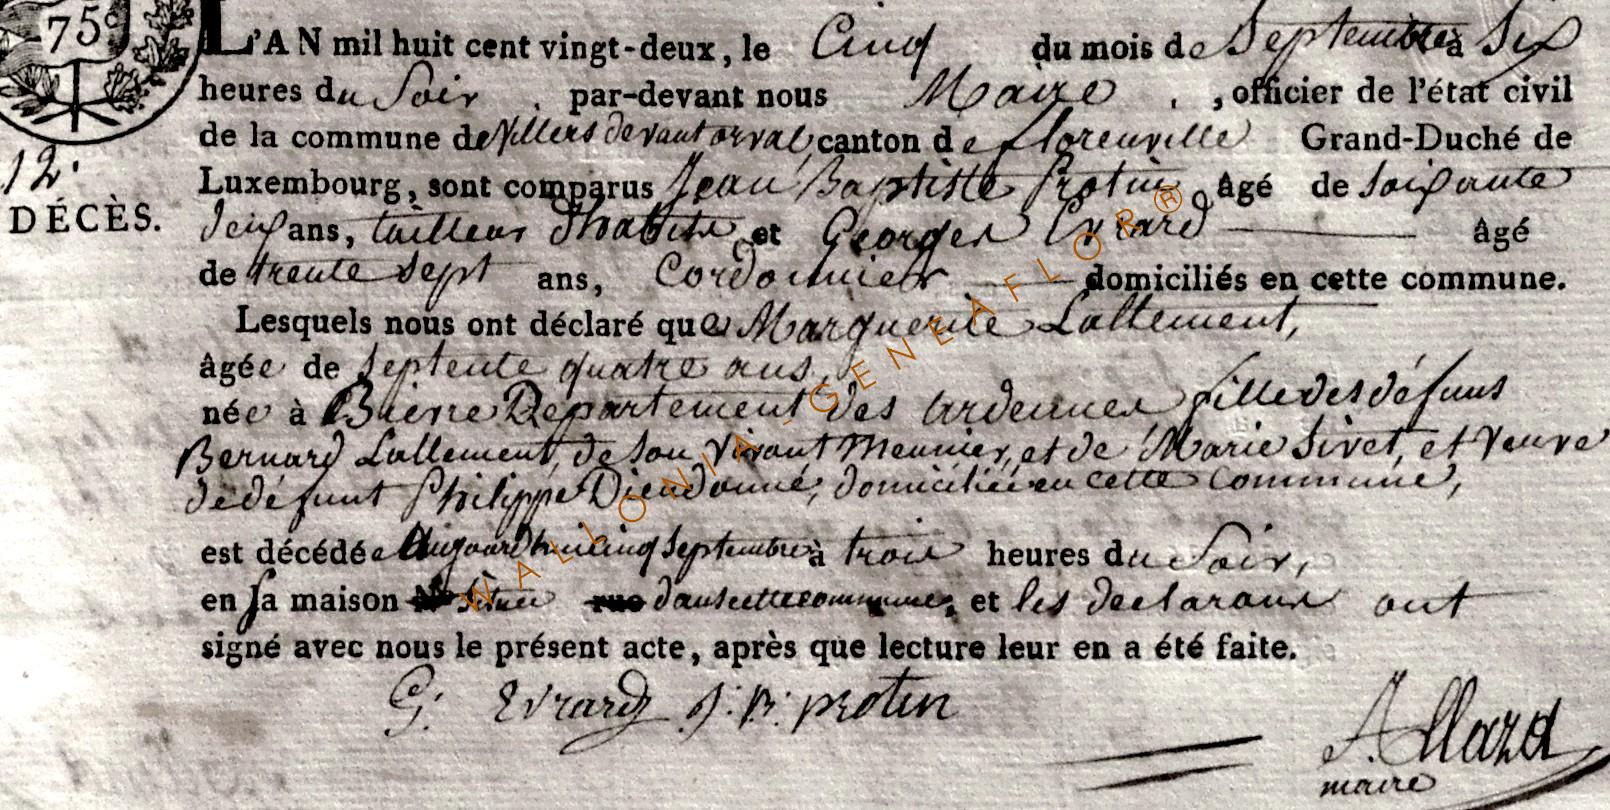 75c
L'AN mil huit cent vingt-deux, le Cinq du mois de Septembre à Six
heures du Soir, par-devant nous Maire, officier de l'état civil
de la commune de Villers devant orval, canton de florenville Grand-Duché de
12.
DÉCÈS.
Luxembourg, sont comparus Jean Baptiste Protin âgé de soixante
ans, tailleur d'habits et Georges Evrard âgé
de trente sept ans, Cordonnier domiciliés en cette commune.
Lesquels nous ont déclaré que Marguerite Lallement,
âgée de septente quatre ans,
née à Bievre Departement des ardennes fille des défuns
Bernard Lallement, de son vivant Meunier, et de Marie Sivet, et veuve
de défunt Philippe Dieudonné, domiciliée en cette Commune,
est décédée aujourd'hui cinq septembre à trois heures du Soir,
en sa maison située dans cette commune, et les declarans ont
signé avec nous le présent acte, après que lecture leur en a été faite.
G. Evrard J. B. protin
maire
WALLONIA - GENEAFLOR ®